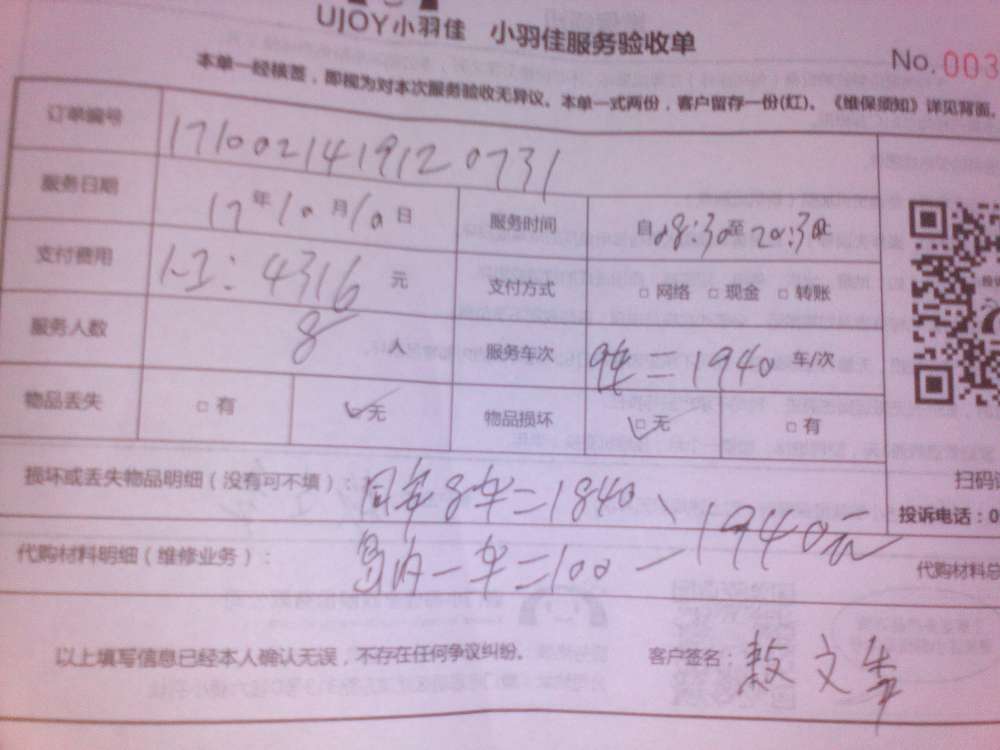 UJOY小羽佳 小羽佳服务验收单
No. 003
本单一经核签，即视为对本次服务验收无异议。本单一式两份，客户留存一份(红)。《维保须知》详见背面。
订单编号 171002141912 0731
服务日期 17年10月10日 服务时间 自08:30至20:30止
支付费用 4316 元 支付方式 □ 网络 □ 现金 □ 转账
服务人数 8 人 服务车次 9车=1940 车/次
物品丢失 □ 有 ✓无 物品损坏 □✓无 □ 有
损坏或丢失物品明细（没有可不填）： 8车=1840、
扫码
投诉电话：0
代购材料明细（维修业务）： 岛内一车=100 — 1940元
代购材料总
以上填写信息已经本人确认无误，不存在任何争议纠纷。 客户签名：